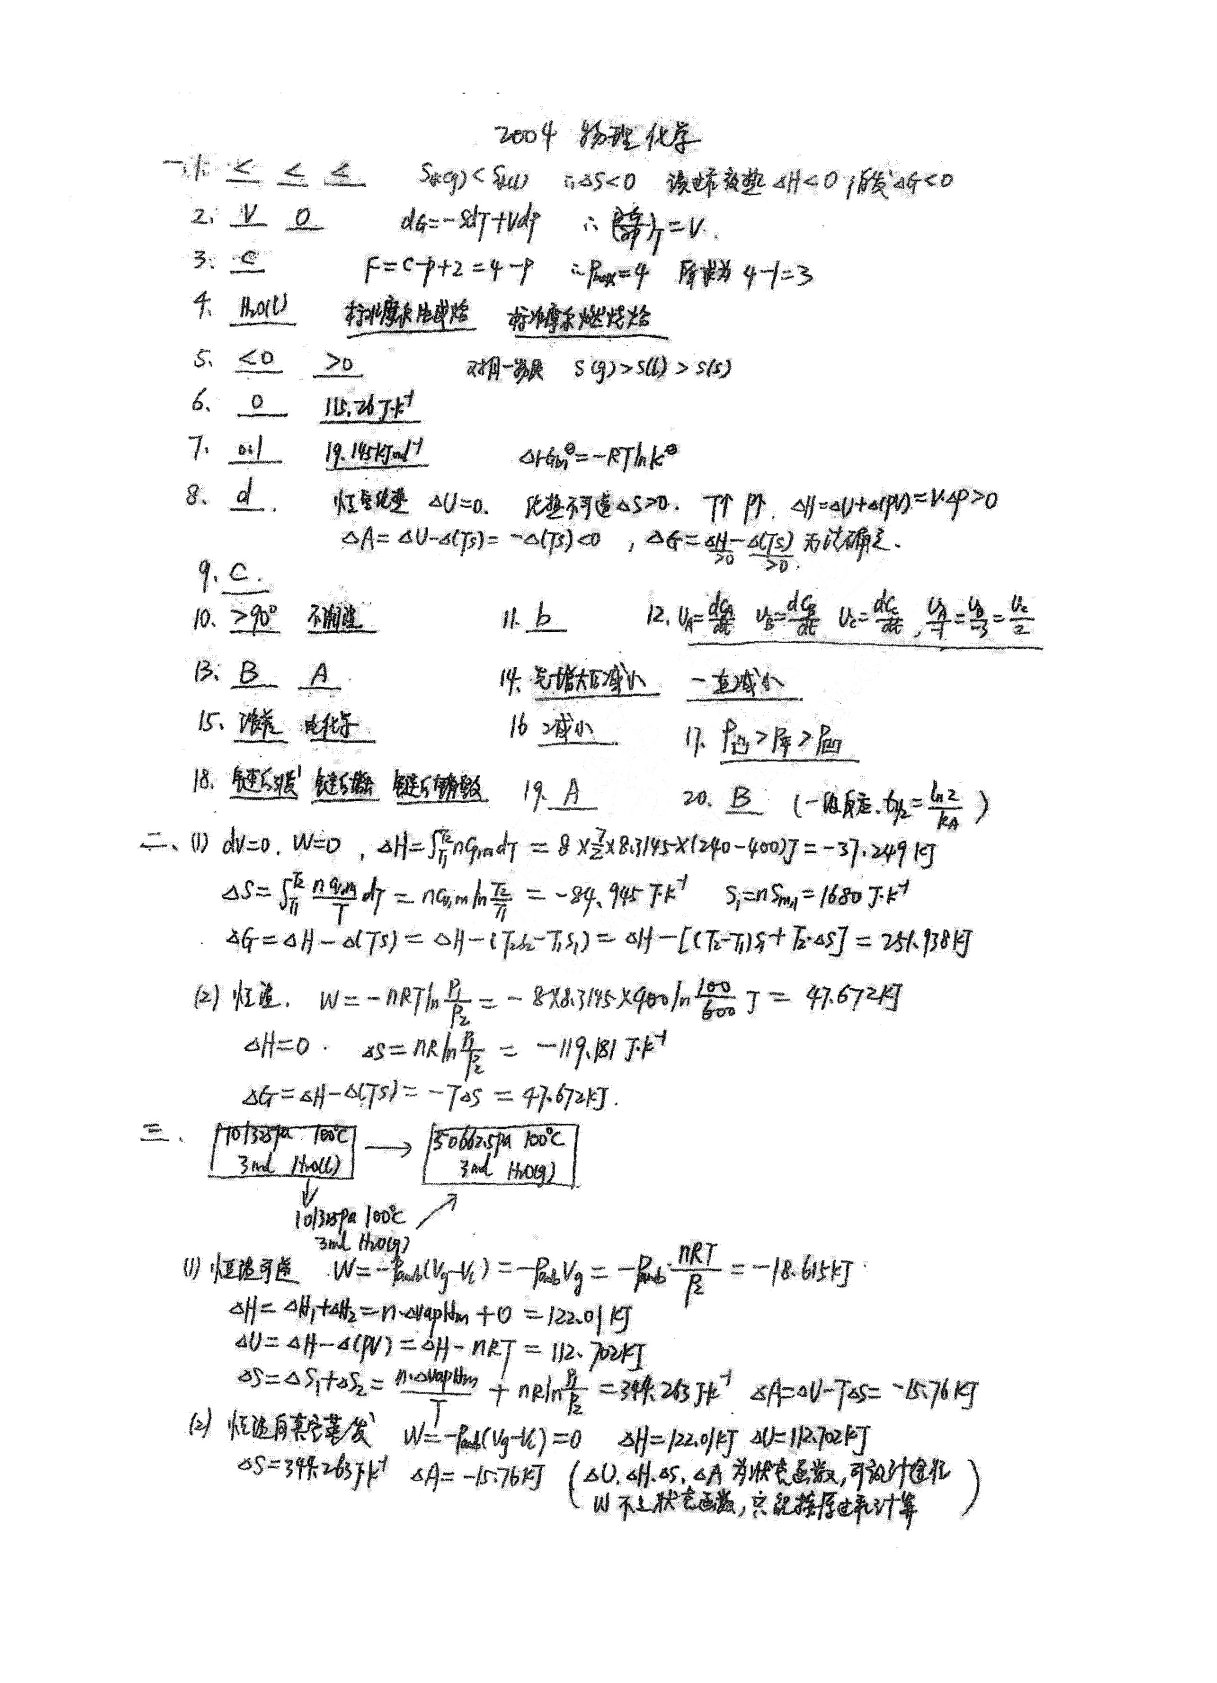 2004 物理化学
一、1. < < < S水(g)<S水(l) ∴ΔS<0 该过程放热 ΔH<0,自发 ΔG<0
2. V 0 dG=-SdT+Vdp ∴(∂G/∂P)T=V.
3. C F=C-P+2=4-P ∴Pmax=4 所求为 4-1=3
4. H2O(l) 标准摩尔生成焓 标准摩尔燃烧焓
5. <0 >0 对同一物质 S(g)>S(l)>S(s)
6. 0 115.26 J·K⁻¹
7. 0.1 19.145kJ·mol⁻¹ ΔrGm^θ=-RTlnK^θ
8. d. 恒容绝热 ΔU=0. 绝热不可逆ΔS>0. T↑ P↑. ΔH=ΔU+Δ(PV)=V·ΔP>0
ΔA=ΔU-Δ(TS)=-Δ(TS)<0 , ΔG=ΔH(>0)-Δ(TS)(>0) 无法确定.
9. C.
10. >90° 不润湿 11. b 12. υA=dCA/dt υB=dCB/dt υC=dCC/dt , υA/-1=υB/-3=υC/2
13. B A 14. 先增大后减小 一直减小
15. 浓差 电化学 16 减小 17. P凸>P平>P凹
18. 链引发 链传递 链终止 19. A 20. B (一级反应. t1/2=ln2/kA)
二、(1) dV=0. W=0 , ΔH=∫T1T2 nCp,m dT = 8×7/2×8.3145×(240-400)J=-37.249kJ
ΔS=∫T1T2 nCv,m/T dT = nCv,m ln T2/T1 = -84.945 J·K⁻¹ S1=nSm,1=1680 J·K⁻¹
ΔG=ΔH-Δ(TS)=ΔH-(T2S2-T1S1)=ΔH-[(T2-T1)S1+T2·ΔS]=251.938kJ
(2) 恒温. W=-nRTln P1/P2=-8×8.3145×400ln 100/600 J=47.672kJ
ΔH=0. ΔS=nRln P1/P2 = -119.181 J·K⁻¹
ΔG=ΔH-Δ(TS)=-TΔS=47.672kJ.
三、 101325Pa 100℃ → 50662.5Pa 100℃
3mol H2O(l) 3mol H2O(g)
101325Pa 100℃
3mol H2O(g)
(1) 恒温可逆 W=-Pamb(Vg-Vl)=-PambVg=-Pamb·nRT/P2=-18.615kJ
ΔH=ΔH1+ΔH2=n·ΔvapHm+0=122.01kJ
ΔU=ΔH-Δ(PV)=ΔH-nRT=112.702kJ
ΔS=ΔS1+ΔS2=n·ΔvapHm/T+nRln P1/P2=344.263J·K⁻¹ ΔA=ΔU-TΔS=-15.76kJ
(2) 恒温向真空蒸发 W=-Pamb(Vg-Vl)=0 ΔH=122.01kJ ΔU=112.702kJ
ΔS=344.263J·K⁻¹ ΔA=-15.76kJ (ΔU.ΔH.ΔS.ΔA 为状态函数,可设计途径
W 不是状态函数,只能按原过程计算)